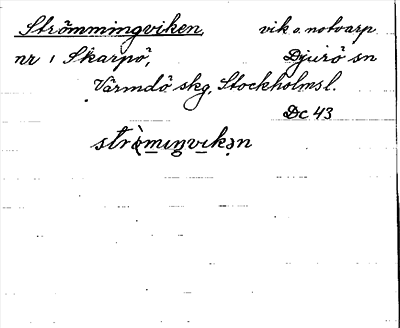 Strömmingviken, vik o. notvarp
nr 1 Skarpö, Djurö sn
Värmdö skg, Stockholmsl.
Dc 43
strö̀miŋvikən